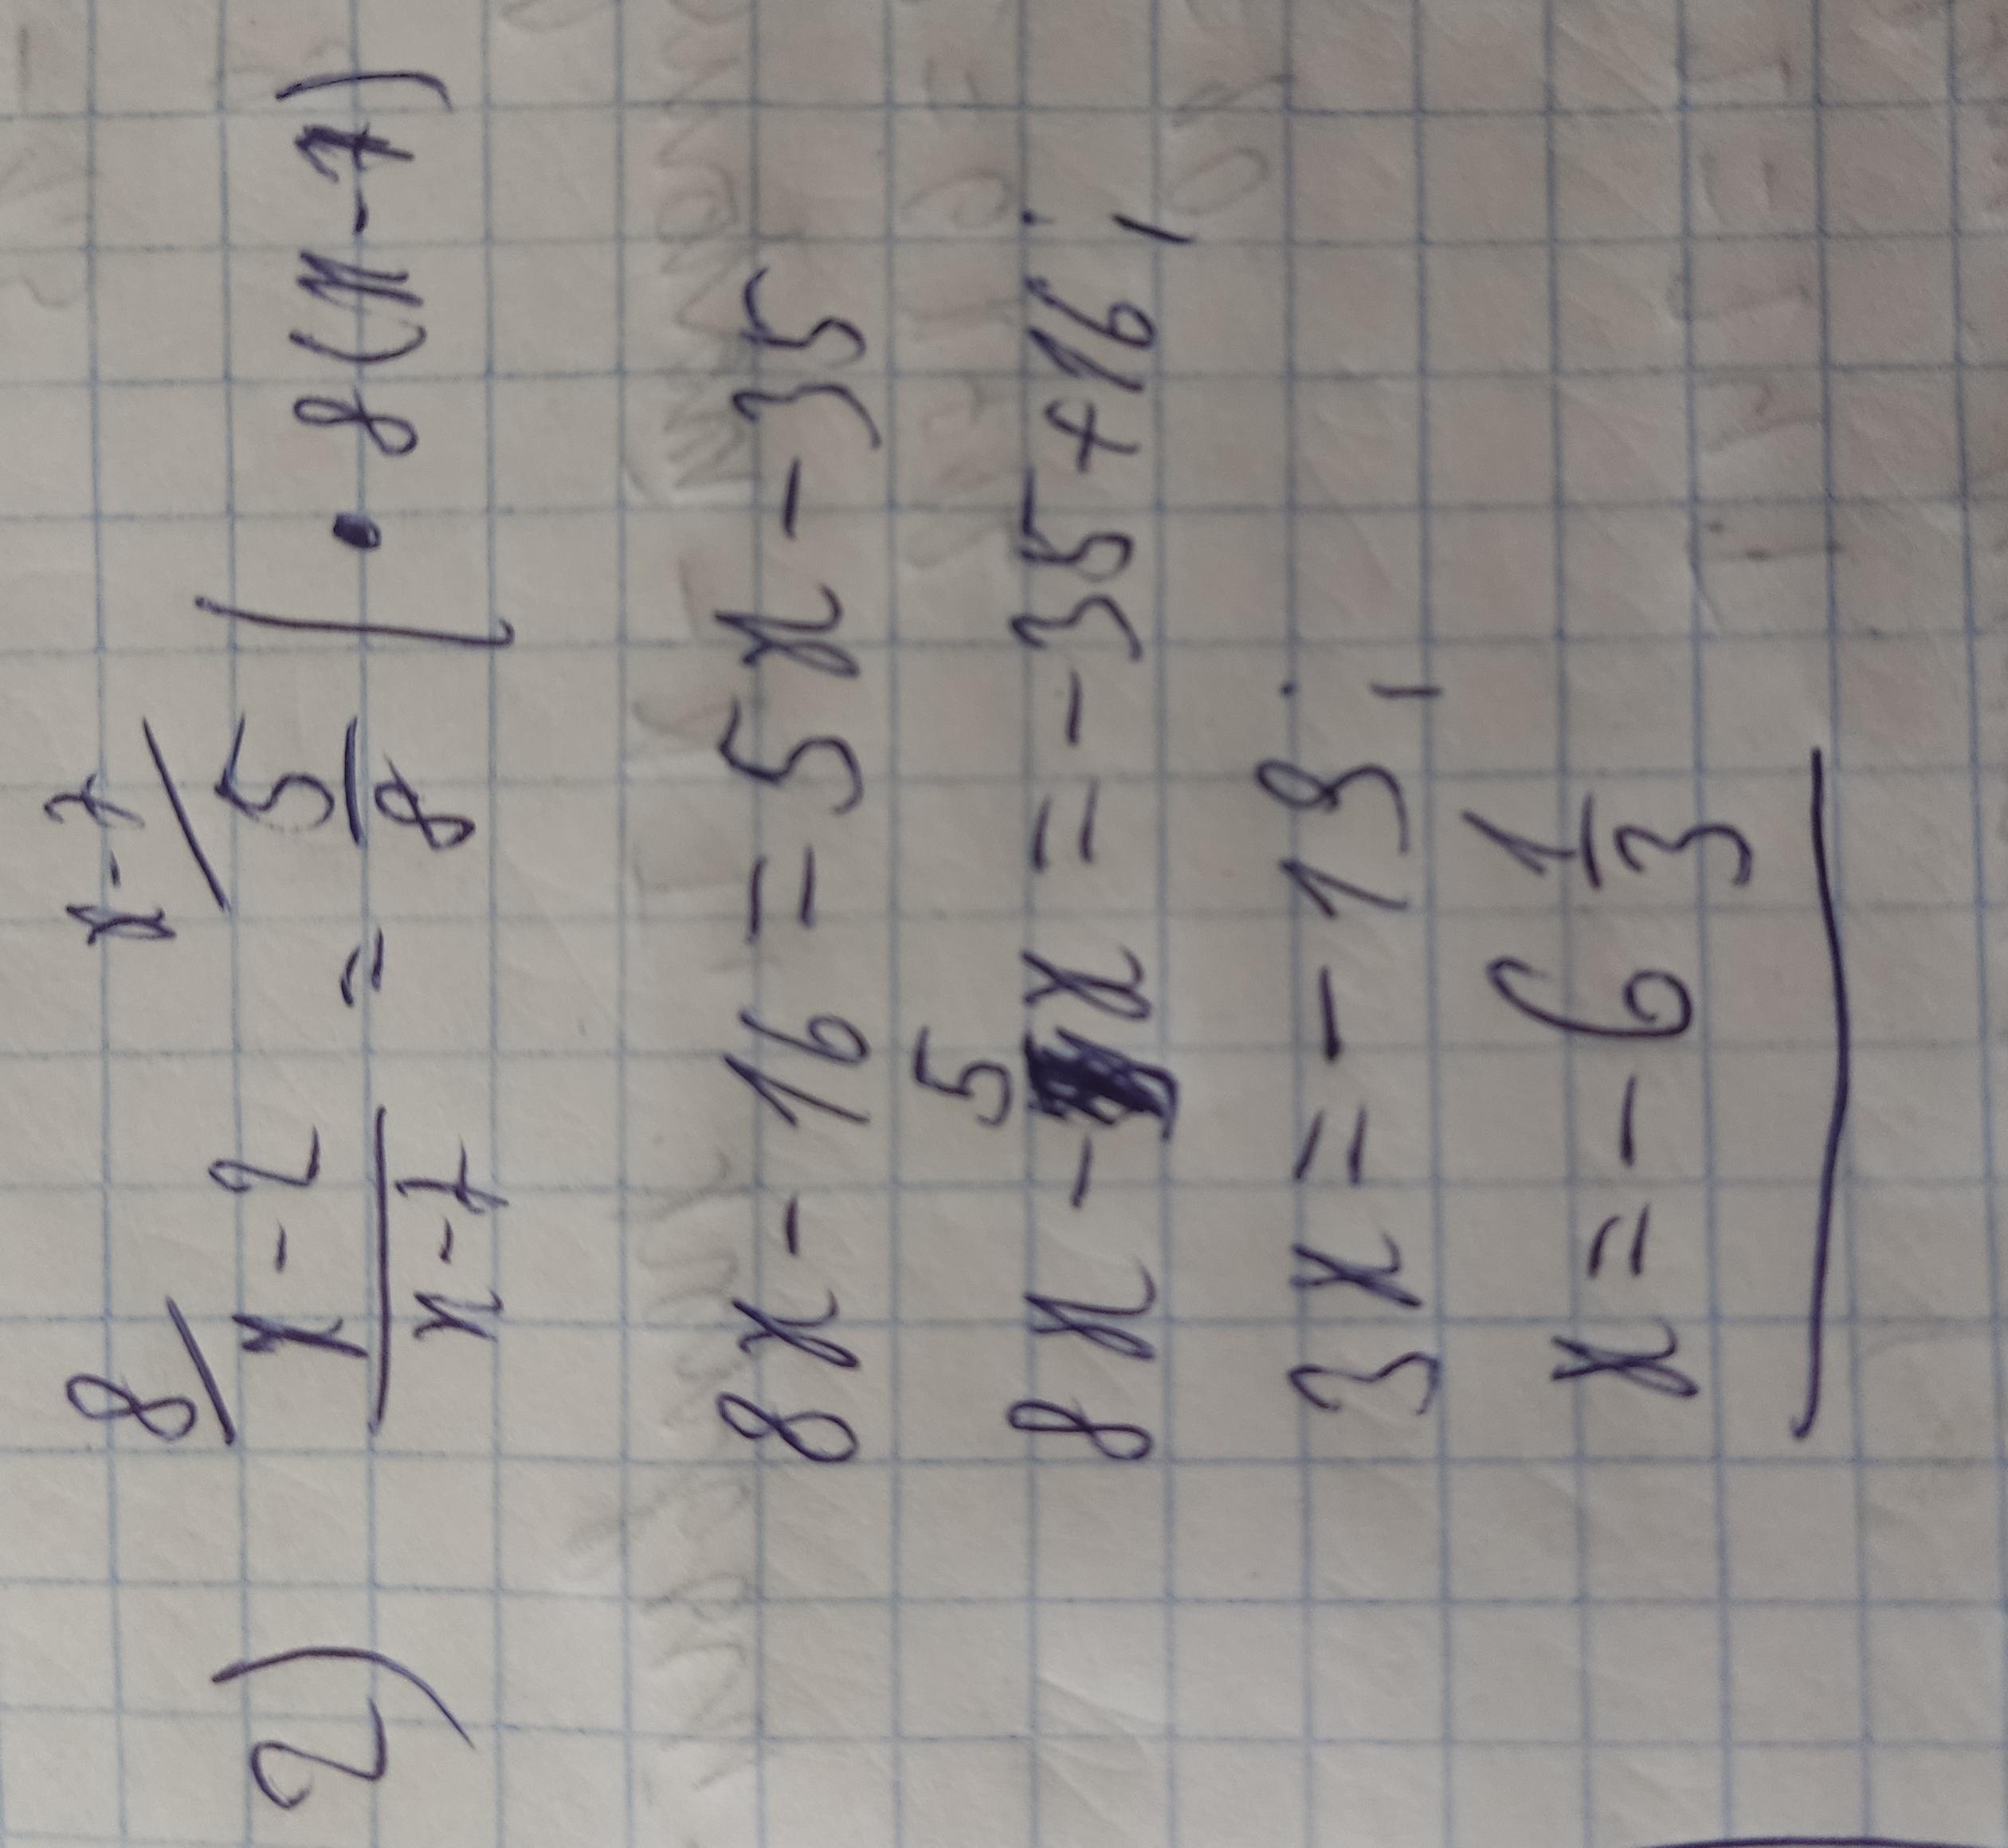 2) 8/ x-2/x-7 = x-7/ 5/8 | • 8(x-7)
8x - 16 = 5x - 35
8x - 5x = - 35 + 16 ;
3x = - 19 ;
x = - 6 1/3